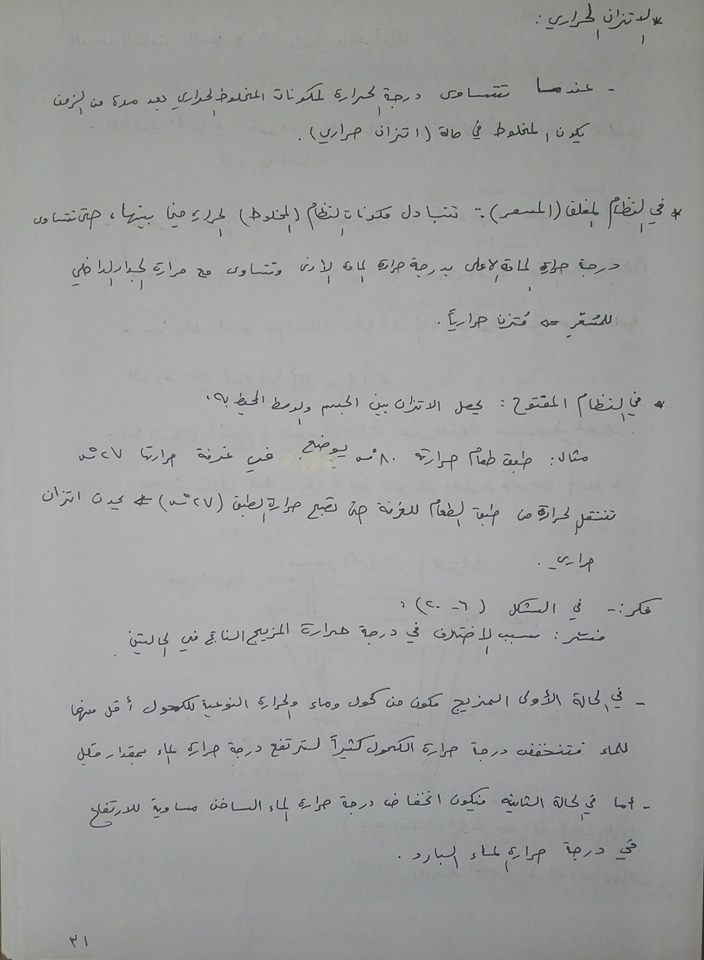 * الاتزان الحراري :
- عندما تتساوى درجة الحرارة لمكونات المخلوط الحراري بعد مدة من الزمن
يكون المخلوط في حالة (اتزان حراري) .
* في النظام المغلق (المسعر) : تتبادل مكونات النظام (المخلوط) الحرارة فيما بينها ، حتى تتساوى
درجة حرارة المادة الأعلى بدرجة حرارة المادة الأدنى وتتساوى مع حرارة الجدار الداخلي
للمُسعّر متزن حرارياً .
* في النظام المفتوح : يحصل الاتزان بين الجسم والوسط المحيط به .
مثال : طبق طعام حرارته ٨٠ °س يوضع في غرفة حرارتها ٢٧ °س
تنتقل الحرارة من طبق الطعام للغرفة حتى تصبح حرارة الطبق (٢٧ °س) يحدث اتزان
حراري .
فكر :- في الشكل (٦-٢٠) :
فسّر : سبب الاختلاف في درجة حرارة المزيج الناتج في الحالتين .
- في الحالة الأولى المزيج مكون من كحول وماء والحرارة النوعية للكحول أقل منها
للماء فتنخفض درجة حرارة الكحول كثيراً لترتفع درجة حرارة الماء بمقدار قليل
- أما في الحالة الثانية فيكون انخفاض درجة حرارة الماء الساخن مساوية للارتفاع
في درجة حرارة الماء البارد .
٣١